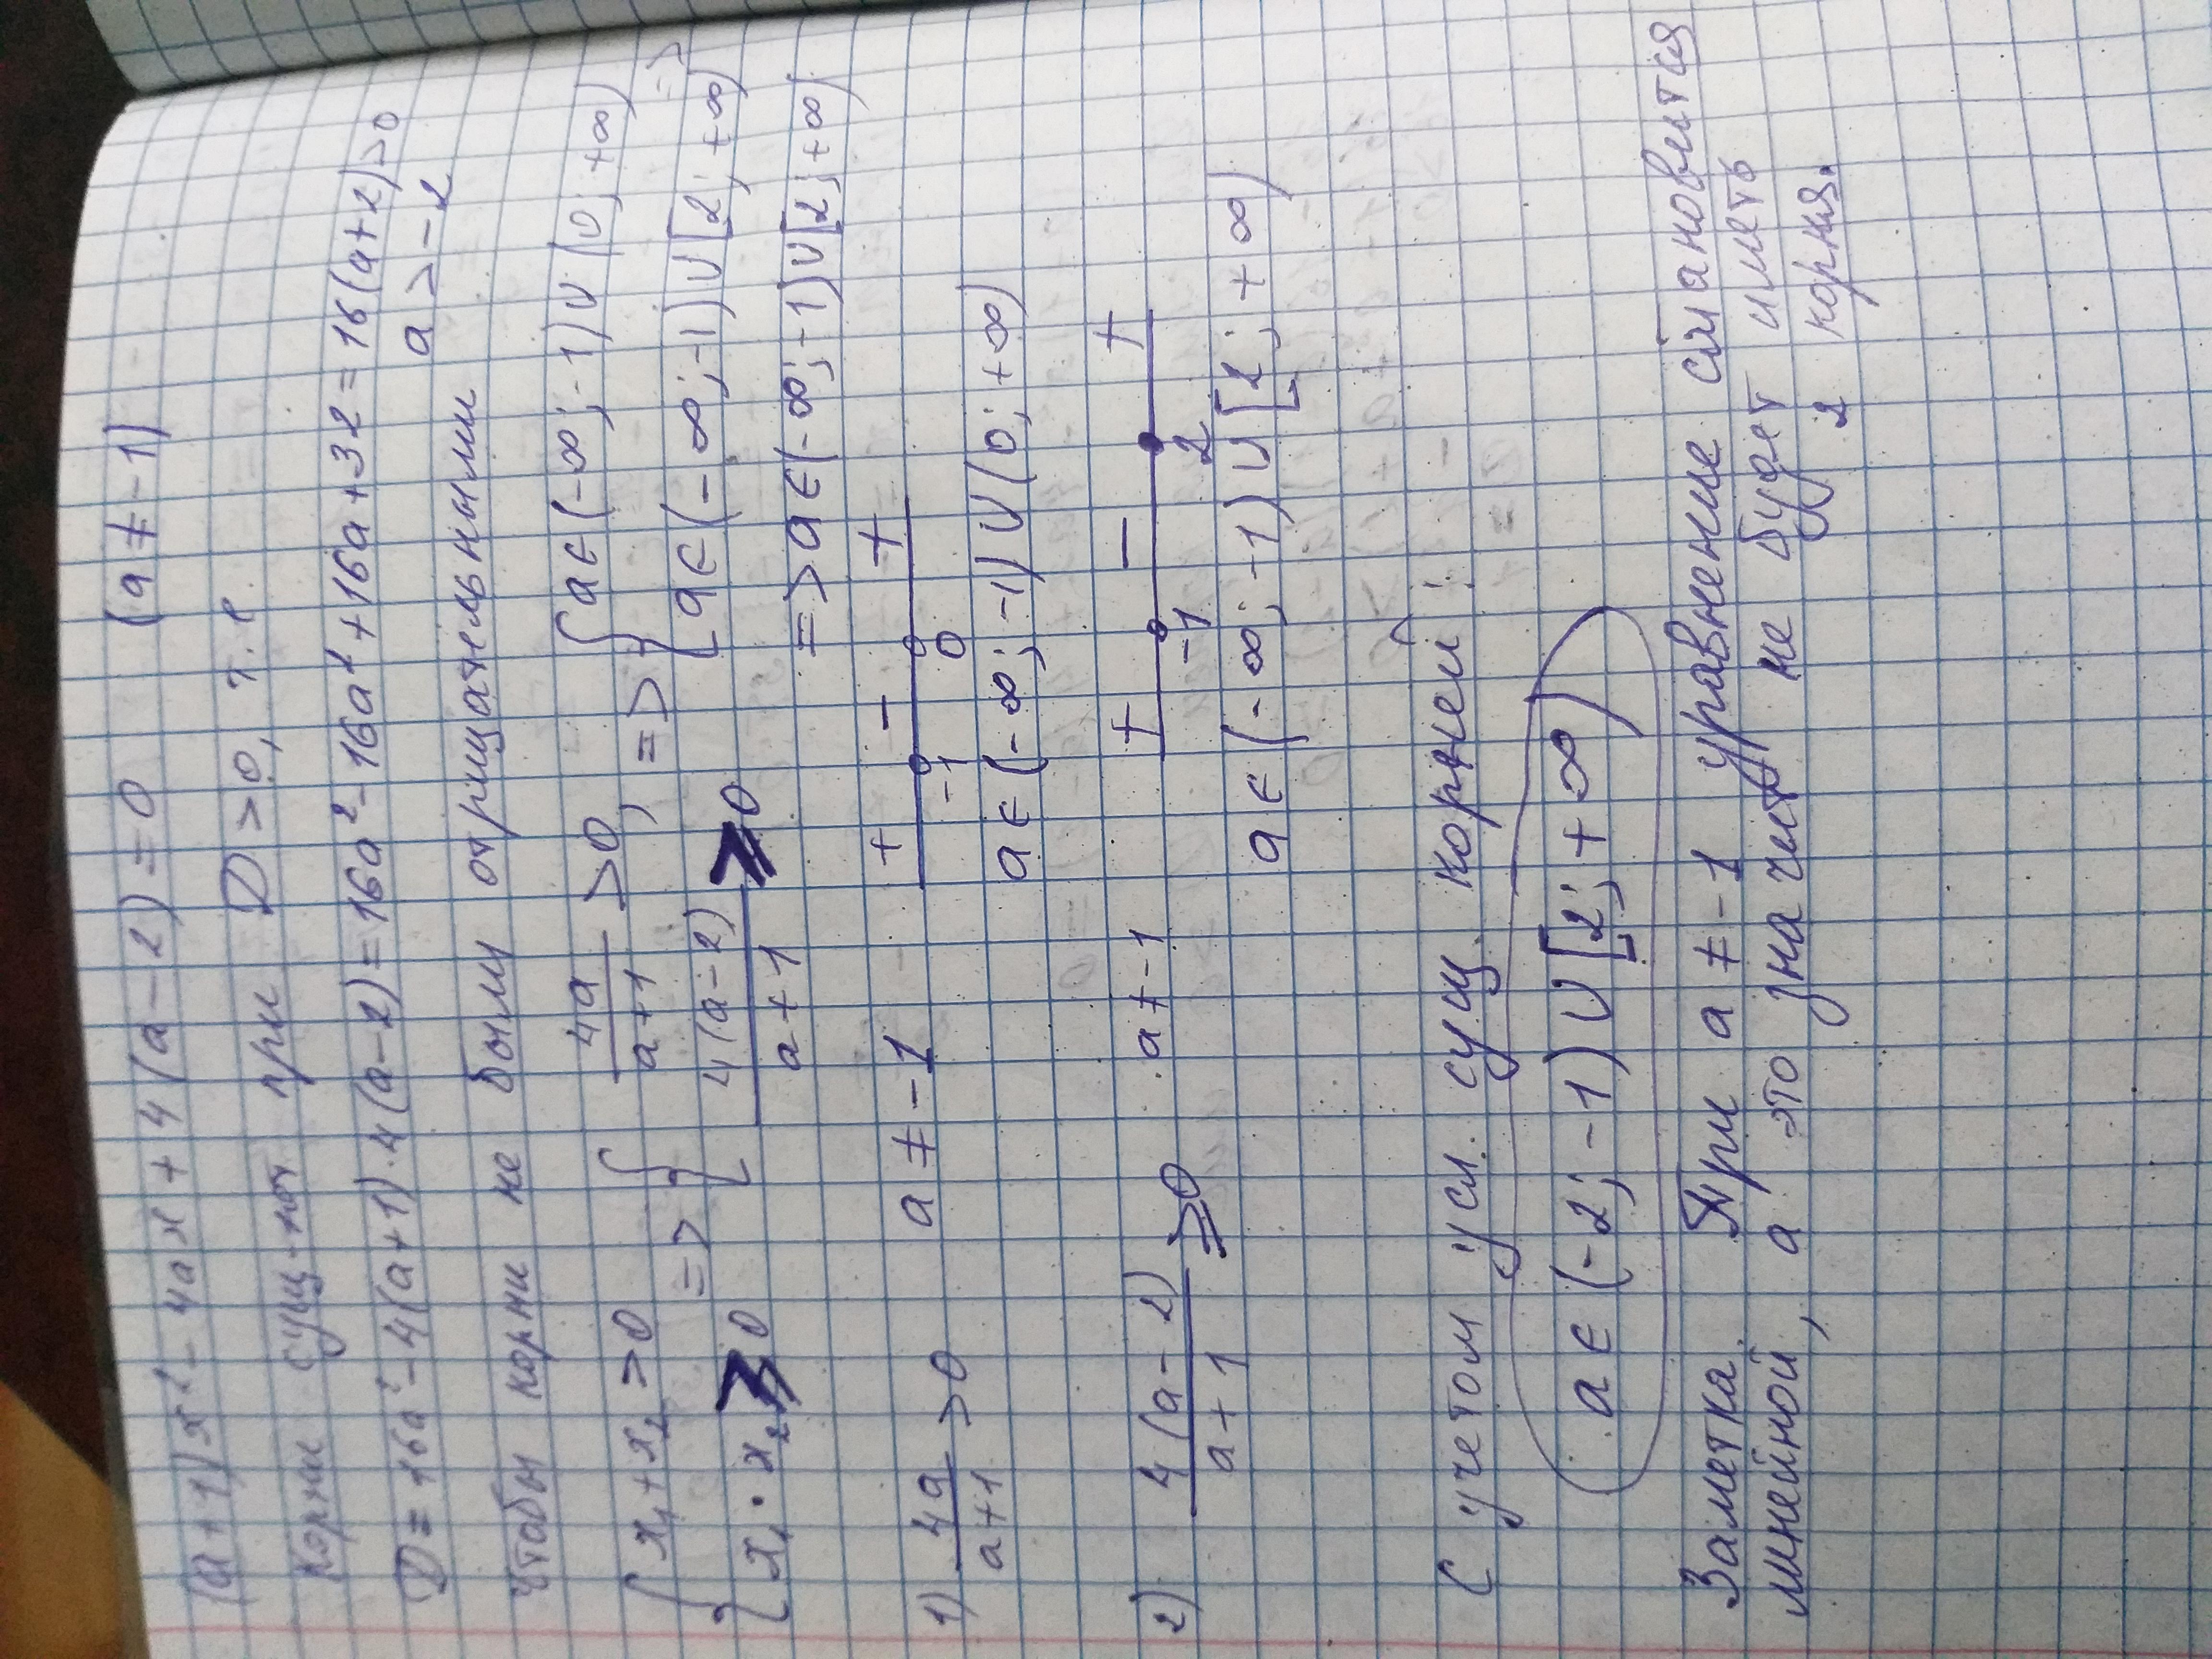 (a+1)x² - 4ax + 4(a-2) = 0 (a ≠ -1)
Корни сущ-ют при D > 0, т.е
D = 16a² - 4(a+1)·4(a-2) = 16a² - 16a² + 16a + 32 = 16(a+2) > 0
a > -2
Чтобы корни не были отрицательными
{ x₁ + x₂ > 0 => { 4a/(a+1) > 0, => { a ∈ (-∞; -1) ∪ (0; +∞) =>
{ x₁ · x₂ ≥ 0 { 4(a-2)/(a+1) ≥ 0 { a ∈ (-∞; -1) ∪ [2; +∞)
=> a ∈ (-∞; -1) ∪ [2; +∞)
1) 4a/(a+1) > 0 a ≠ -1 + - +
-1 0
a ∈ (-∞; -1) ∪ (0; +∞)
2) 4(a-2)/(a+1) ≥ 0 a ≠ -1 + - +
-1 2
a ∈ (-∞; -1) ∪ [2; +∞)
С учетом усл. сущ. корней:
a ∈ (-2; -1) ∪ [2; +∞)
Заметка. При a ≠ -1 уравнение становится
линейной, а это значит не будет иметь
2 корня.